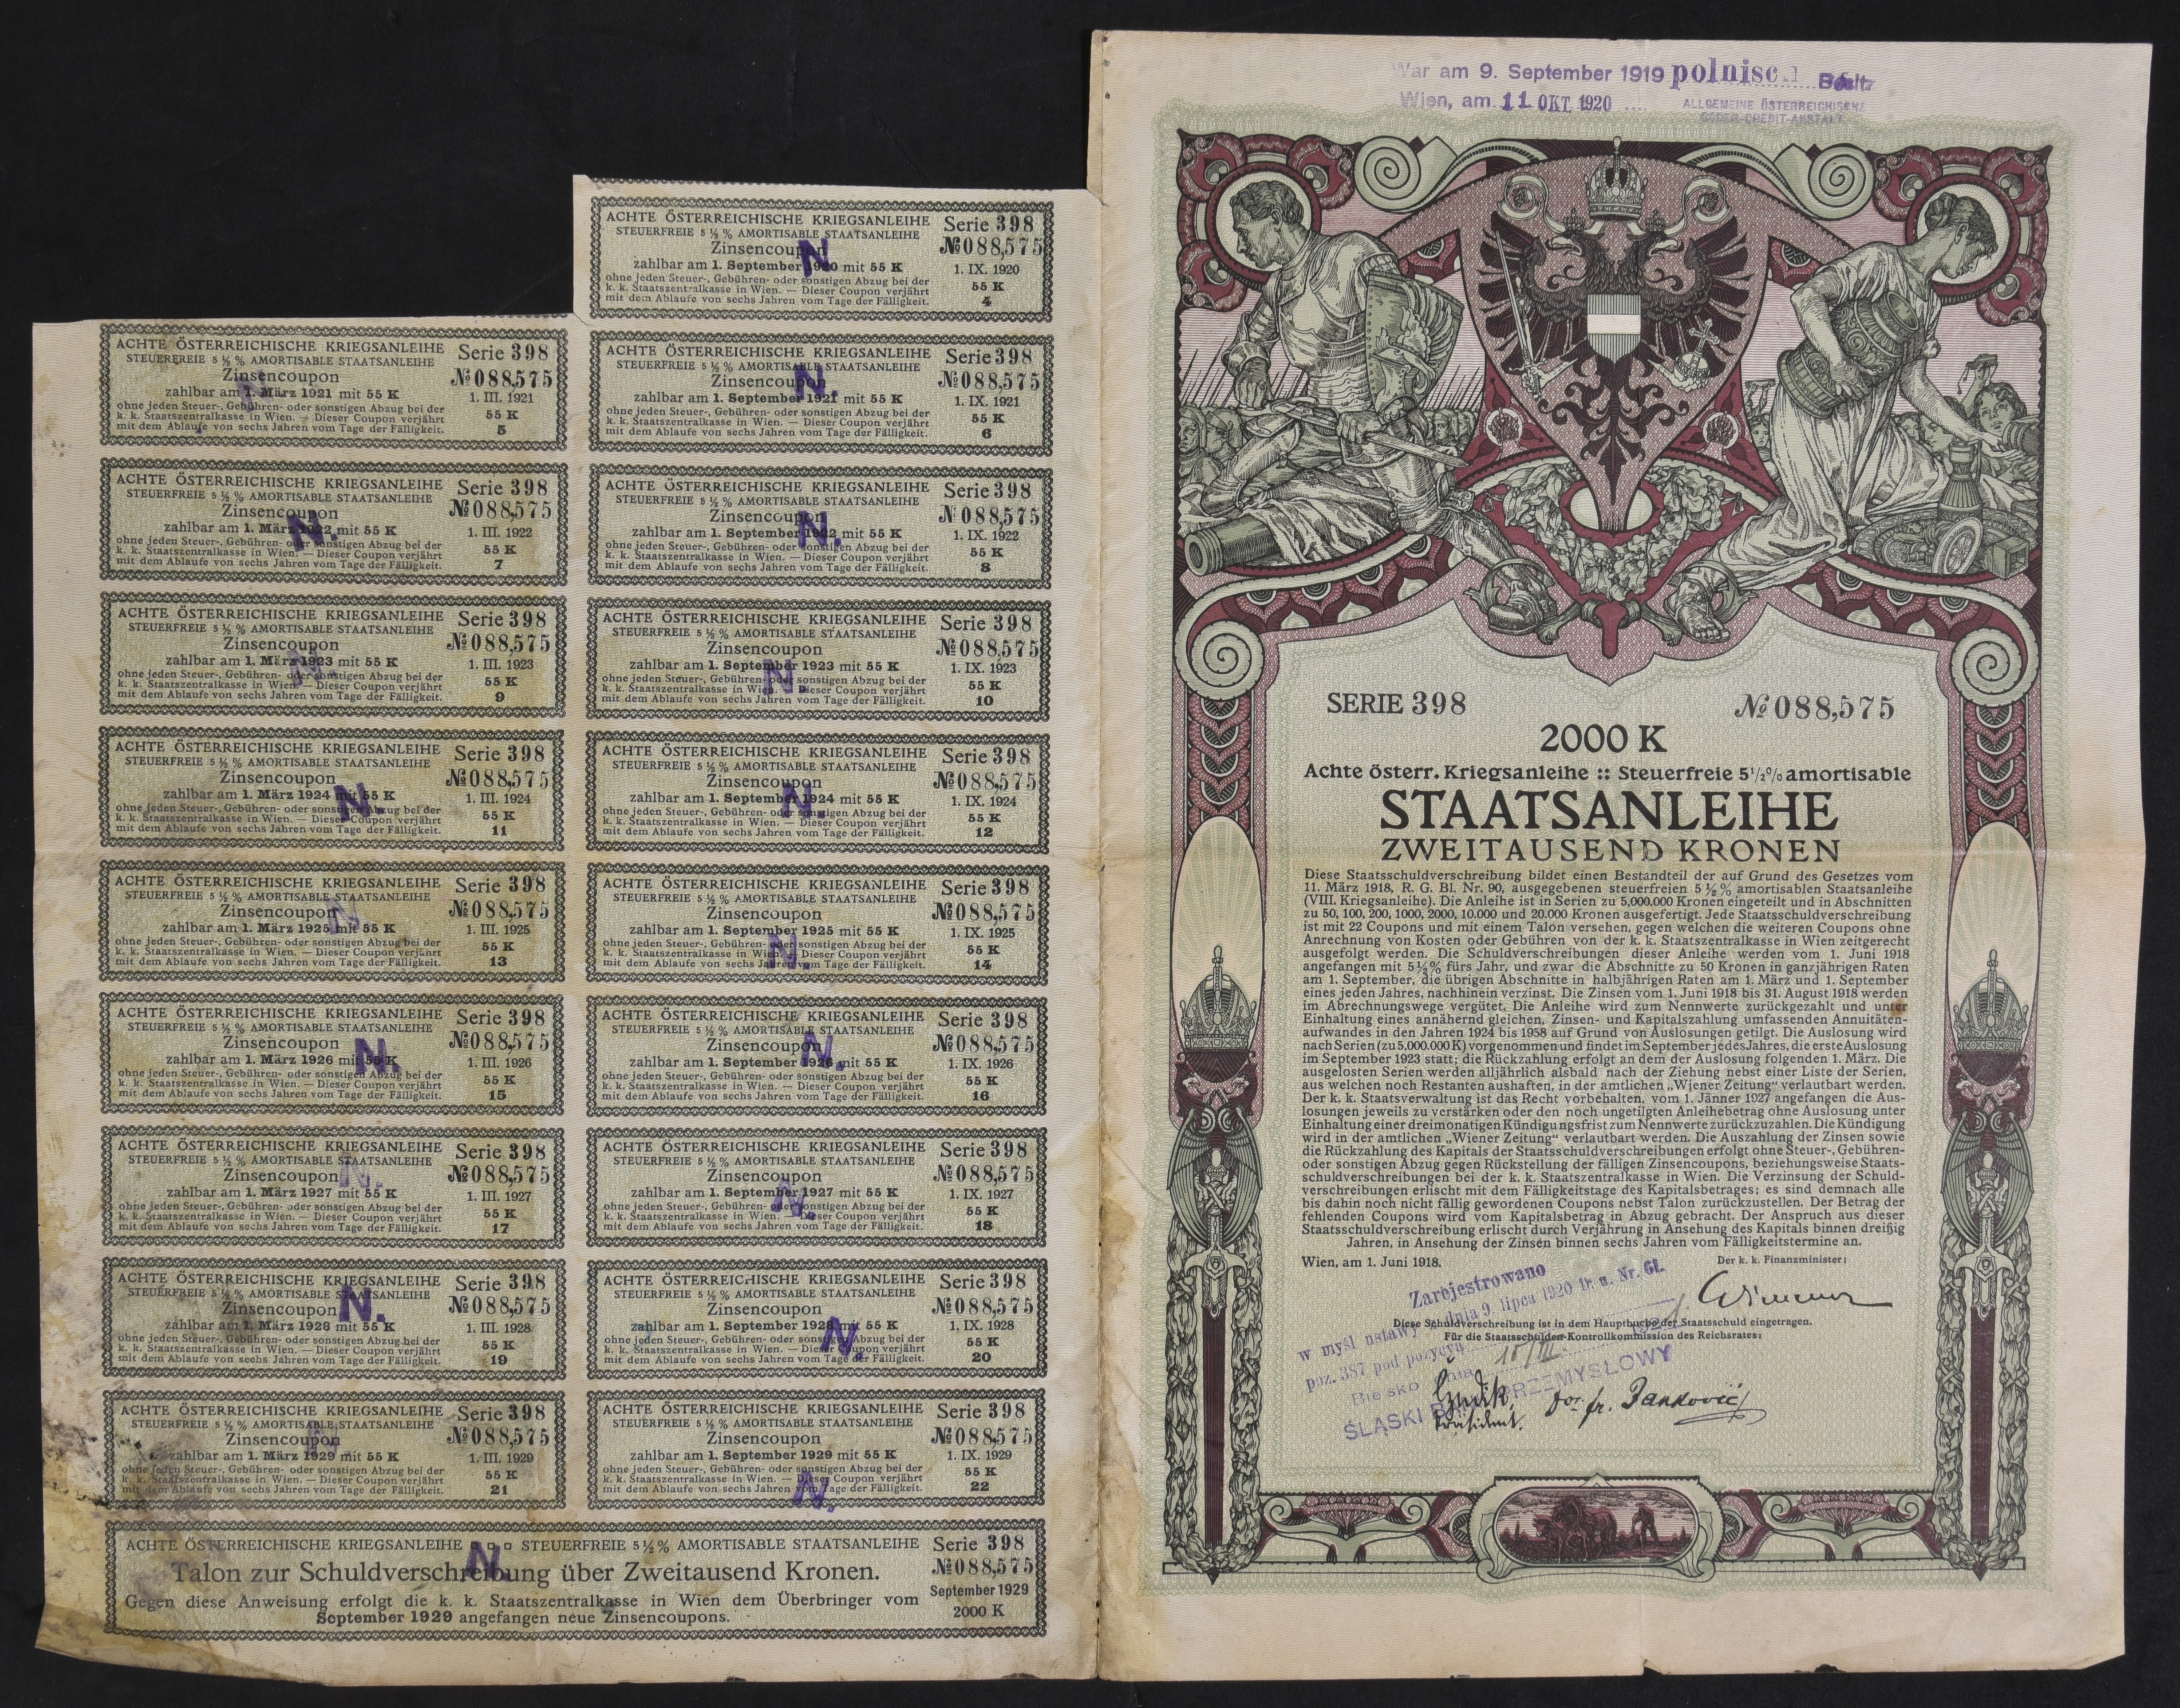 ACHTE ÖSTERREICHISCHE KRIEGSANLEIHE Serie 398
STEUERFREIE 5 ½ % AMORTISABLE STAATSANLEIHE
Zinsencoupon №088,575
zahlbar am 1. September 1920 mit 55 K 1. IX. 1920
ohne jeden Steuer-, Gebühren- oder sonstigen Abzug bei der
k. k. Staatszentralkasse in Wien. — Dieser Coupon verjährt 55 K
mit dem Ablaufe von sechs Jahren vom Tage der Fälligkeit. 4
N
ACHTE ÖSTERREICHISCHE KRIEGSANLEIHE Serie 398
STEUERFREIE 5 ½ % AMORTISABLE STAATSANLEIHE
Zinsencoupon №088,575
zahlbar am 1. März 1921 mit 55 K 1. III. 1921
ohne jeden Steuer-, Gebühren- oder sonstigen Abzug bei der
k. k. Staatszentralkasse in Wien. — Dieser Coupon verjährt 55 K
mit dem Ablaufe von sechs Jahren vom Tage der Fälligkeit. 5
N
ACHTE ÖSTERREICHISCHE KRIEGSANLEIHE Serie 398
STEUERFREIE 5 ½ % AMORTISABLE STAATSANLEIHE
Zinsencoupon №088,575
zahlbar am 1. September 1921 mit 55 K 1. IX. 1921
ohne jeden Steuer-, Gebühren- oder sonstigen Abzug bei der
k. k. Staatszentralkasse in Wien. — Dieser Coupon verjährt 55 K
mit dem Ablaufe von sechs Jahren vom Tage der Fälligkeit. 6
N.
ACHTE ÖSTERREICHISCHE KRIEGSANLEIHE Serie 398
STEUERFREIE 5 ½ % AMORTISABLE STAATSANLEIHE
Zinsencoupon №088,575
zahlbar am 1. März 1922 mit 55 K 1. III. 1922
ohne jeden Steuer-, Gebühren- oder sonstigen Abzug bei der
k. k. Staatszentralkasse in Wien. — Dieser Coupon verjährt 55 K
mit dem Ablaufe von sechs Jahren vom Tage der Fälligkeit. 7
N.
ACHTE ÖSTERREICHISCHE KRIEGSANLEIHE Serie 398
STEUERFREIE 5 ½ % AMORTISABLE STAATSANLEIHE
Zinsencoupon №088,575
zahlbar am 1. September 1922 mit 55 K 1. IX. 1922
ohne jeden Steuer-, Gebühren- oder sonstigen Abzug bei der
k. k. Staatszentralkasse in Wien. — Dieser Coupon verjährt 55 K
mit dem Ablaufe von sechs Jahren vom Tage der Fälligkeit. 8
N.
ACHTE ÖSTERREICHISCHE KRIEGSANLEIHE Serie 398
STEUERFREIE 5 ½ % AMORTISABLE STAATSANLEIHE
Zinsencoupon №088,575
zahlbar am 1. März 1923 mit 55 K 1. III. 1923
ohne jeden Steuer-, Gebühren- oder sonstigen Abzug bei der
k. k. Staatszentralkasse in Wien. — Dieser Coupon verjährt 55 K
mit dem Ablaufe von sechs Jahren vom Tage der Fälligkeit. 9
N.
ACHTE ÖSTERREICHISCHE KRIEGSANLEIHE Serie 398
STEUERFREIE 5 ½ % AMORTISABLE STAATSANLEIHE
Zinsencoupon №088,575
zahlbar am 1. September 1923 mit 55 K 1. IX. 1923
ohne jeden Steuer-, Gebühren- oder sonstigen Abzug bei der
k. k. Staatszentralkasse in Wien. — Dieser Coupon verjährt 55 K
mit dem Ablaufe von sechs Jahren vom Tage der Fälligkeit. 10
N.
ACHTE ÖSTERREICHISCHE KRIEGSANLEIHE Serie 398
STEUERFREIE 5 ½ % AMORTISABLE STAATSANLEIHE
Zinsencoupon №088,575
zahlbar am 1. März 1924 mit 55 K 1. III. 1924
ohne jeden Steuer-, Gebühren- oder sonstigen Abzug bei der
k. k. Staatszentralkasse in Wien. — Dieser Coupon verjährt 55 K
mit dem Ablaufe von sechs Jahren vom Tage der Fälligkeit. 11
N.
ACHTE ÖSTERREICHISCHE KRIEGSANLEIHE Serie 398
STEUERFREIE 5 ½ % AMORTISABLE STAATSANLEIHE
Zinsencoupon №088,575
zahlbar am 1. September 1924 mit 55 K 1. IX. 1924
ohne jeden Steuer-, Gebühren- oder sonstigen Abzug bei der
k. k. Staatszentralkasse in Wien. — Dieser Coupon verjährt 55 K
mit dem Ablaufe von sechs Jahren vom Tage der Fälligkeit. 12
N.
ACHTE ÖSTERREICHISCHE KRIEGSANLEIHE Serie 398
STEUERFREIE 5 ½ % AMORTISABLE STAATSANLEIHE
Zinsencoupon №088,575
zahlbar am 1. März 1925 mit 55 K 1. III. 1925
ohne jeden Steuer-, Gebühren- oder sonstigen Abzug bei der
k. k. Staatszentralkasse in Wien. — Dieser Coupon verjährt 55 K
mit dem Ablaufe von sechs Jahren vom Tage der Fälligkeit. 13
N.
ACHTE ÖSTERREICHISCHE KRIEGSANLEIHE Serie 398
STEUERFREIE 5 ½ % AMORTISABLE STAATSANLEIHE
Zinsencoupon №088,575
zahlbar am 1. September 1925 mit 55 K 1. IX. 1925
ohne jeden Steuer-, Gebühren- oder sonstigen Abzug bei der
k. k. Staatszentralkasse in Wien. — Dieser Coupon verjährt 55 K
mit dem Ablaufe von sechs Jahren vom Tage der Fälligkeit. 14
N.
ACHTE ÖSTERREICHISCHE KRIEGSANLEIHE Serie 398
STEUERFREIE 5 ½ % AMORTISABLE STAATSANLEIHE
Zinsencoupon №088,575
zahlbar am 1. März 1926 mit 55 K 1. III. 1926
ohne jeden Steuer-, Gebühren- oder sonstigen Abzug bei der
k. k. Staatszentralkasse in Wien. — Dieser Coupon verjährt 55 K
mit dem Ablaufe von sechs Jahren vom Tage der Fälligkeit. 15
N.
ACHTE ÖSTERREICHISCHE KRIEGSANLEIHE Serie 398
STEUERFREIE 5 ½ % AMORTISABLE STAATSANLEIHE
Zinsencoupon №088,575
zahlbar am 1. September 1926 mit 55 K 1. IX. 1926
ohne jeden Steuer-, Gebühren- oder sonstigen Abzug bei der
k. k. Staatszentralkasse in Wien. — Dieser Coupon verjährt 55 K
mit dem Ablaufe von sechs Jahren vom Tage der Fälligkeit. 16
N.
ACHTE ÖSTERREICHISCHE KRIEGSANLEIHE Serie 398
STEUERFREIE 5 ½ % AMORTISABLE STAATSANLEIHE
Zinsencoupon №088,575
zahlbar am 1. März 1927 mit 55 K 1. III. 1927
ohne jeden Steuer-, Gebühren- oder sonstigen Abzug bei der
k. k. Staatszentralkasse in Wien. — Dieser Coupon verjährt 55 K
mit dem Ablaufe von sechs Jahren vom Tage der Fälligkeit. 17
N.
ACHTE ÖSTERREICHISCHE KRIEGSANLEIHE Serie 398
STEUERFREIE 5 ½ % AMORTISABLE STAATSANLEIHE
Zinsencoupon №088,575
zahlbar am 1. September 1927 mit 55 K 1. IX. 1927
ohne jeden Steuer-, Gebühren- oder sonstigen Abzug bei der
k. k. Staatszentralkasse in Wien. — Dieser Coupon verjährt 55 K
mit dem Ablaufe von sechs Jahren vom Tage der Fälligkeit. 18
N.
ACHTE ÖSTERREICHISCHE KRIEGSANLEIHE Serie 398
STEUERFREIE 5 ½ % AMORTISABLE STAATSANLEIHE
Zinsencoupon №088,575
zahlbar am 1. März 1928 mit 55 K 1. III. 1928
ohne jeden Steuer-, Gebühren- oder sonstigen Abzug bei der
k. k. Staatszentralkasse in Wien. — Dieser Coupon verjährt 55 K
mit dem Ablaufe von sechs Jahren vom Tage der Fälligkeit. 19
N.
ACHTE ÖSTERREICHISCHE KRIEGSANLEIHE Serie 398
STEUERFREIE 5 ½ % AMORTISABLE STAATSANLEIHE
Zinsencoupon №088,575
zahlbar am 1. September 1928 mit 55 K 1. IX. 1928
ohne jeden Steuer-, Gebühren- oder sonstigen Abzug bei der
k. k. Staatszentralkasse in Wien. — Dieser Coupon verjährt 55 K
mit dem Ablaufe von sechs Jahren vom Tage der Fälligkeit. 20
N.
ACHTE ÖSTERREICHISCHE KRIEGSANLEIHE Serie 398
STEUERFREIE 5 ½ % AMORTISABLE STAATSANLEIHE
Zinsencoupon №088,575
zahlbar am 1. März 1929 mit 55 K 1. III. 1929
ohne jeden Steuer-, Gebühren- oder sonstigen Abzug bei der
k. k. Staatszentralkasse in Wien. — Dieser Coupon verjährt 55 K
mit dem Ablaufe von sechs Jahren vom Tage der Fälligkeit. 21
ACHTE ÖSTERREICHISCHE KRIEGSANLEIHE Serie 398
STEUERFREIE 5 ½ % AMORTISABLE STAATSANLEIHE
Zinsencoupon №088,575
zahlbar am 1. September 1929 mit 55 K 1. IX. 1929
ohne jeden Steuer-, Gebühren- oder sonstigen Abzug bei der
k. k. Staatszentralkasse in Wien. — Dieser Coupon verjährt 55 K
mit dem Ablaufe von sechs Jahren vom Tage der Fälligkeit. 22
N.
ACHTE ÖSTERREICHISCHE KRIEGSANLEIHE STEUERFREIE 5½% AMORTISABLE STAATSANLEIHE Serie 398
N.
Talon zur Schuldverschreibung über Zweitausend Kronen. №088,575
Gegen diese Anweisung erfolgt die k. k. Staatszentralkasse in Wien dem Überbringer vom September 1929
September 1929 angefangen neue Zinsencoupons. 2000 K
War am 9. September 1919 polnisch Besitz
Wien, am 11 OKT. 1920
ALLGEMEINE ÖSTERREICHISCHE
BODEN-CREDIT-ANSTALT
SERIE 398 №088,575
2000 K
Achte österr. Kriegsanleihe :: Steuerfreie 5½% amortisable
STAATSANLEIHE
ZWEITAUSEND KRONEN
Diese Staatsschuldverschreibung bildet einen Bestandteil der auf Grund des Gesetzes vom
11. März 1918, R. G. Bl. Nr. 90, ausgegebenen steuerfreien 5 ½ % amortisablen Staatsanleihe
(VIII. Kriegsanleihe). Die Anleihe ist in Serien zu 5,000.000 Kronen eingeteilt und in Abschnitten
zu 50, 100, 200, 1000, 2000, 10.000 und 20.000 Kronen ausgefertigt. Jede Staatsschuldverschreibung
ist mit 22 Coupons und mit einem Talon versehen, gegen welchen die weiteren Coupons ohne
Anrechnung von Kosten oder Gebühren von der k. k. Staatszentralkasse in Wien zeitgerecht
ausgefolgt werden. Die Schuldverschreibungen dieser Anleihe werden vom 1. Juni 1918
angefangen mit 5½% fürs Jahr, und zwar die Abschnitte zu 50 Kronen in ganzjährigen Raten
am 1. September, die übrigen Abschnitte in halbjährigen Raten am 1. März und 1. September
eines jeden Jahres, nachhinein verzinst. Die Zinsen vom 1. Juni 1918 bis 31. August 1918 werden
im Abrechnungswege vergütet. Die Anleihe wird zum Nennwerte zurückgezahlt und unter
Einhaltung eines annähernd gleichen, Zinsen- und Kapitalszahlung umfassenden Annuitäten-
aufwandes in den Jahren 1924 bis 1958 auf Grund von Auslosungen getilgt. Die Auslosung wird
nach Serien (zu 5,000.000 K) vorgenommen und findet im September jedes Jahres, die erste Auslosung
im September 1923 statt; die Rückzahlung erfolgt an dem der Auslosung folgenden 1. März. Die
ausgelosten Serien werden alljährlich alsbald nach der Ziehung nebst einer Liste der Serien,
aus welchen noch Restanten aushaften, in der amtlichen „Wiener Zeitung“ verlautbart werden.
Der k. k. Staatsverwaltung ist das Recht vorbehalten, vom 1. Jänner 1927 angefangen die Aus-
losungen jeweils zu verstärken oder den noch ungetilgten Anleihebetrag ohne Auslosung unter
Einhaltung einer dreimonatigen Kündigungsfrist zum Nennwerte zurückzuzahlen. Die Kündigung
wird in der amtlichen „Wiener Zeitung“ verlautbart werden. Die Auszahlung der Zinsen sowie
die Rückzahlung des Kapitals der Staatsschuldverschreibungen erfolgt ohne Steuer-, Gebühren-
oder sonstigen Abzug gegen Rückstellung der fälligen Zinsencoupons, beziehungsweise Staats-
schuldverschreibungen bei der k. k. Staatszentralkasse in Wien. Die Verzinsung der Schuld-
verschreibungen erlischt mit dem Fälligkeitstage des Kapitalsbetrages; es sind demnach alle
bis dahin noch nicht fällig gewordenen Coupons nebst Talon zurückzustellen. Der Betrag der
fehlenden Coupons wird vom Kapitalsbetrag in Abzug gebracht. Der Anspruch aus dieser
Staatsschuldverschreibung erlischt durch Verjährung in Ansehung des Kapitals binnen dreißig
Jahren, in Ansehung der Zinsen binnen sechs Jahren vom Fälligkeitstermine an.
Wien, am 1. Juni 1918. Der k. k. Finanzminister:
Wimmer
Zarejestrowano
w myśl ustawy z dnia 9. lipca 1920 Dz. u. Nr. 61.
poz. 387 pod pozycyą
Diese Schuldverschreibung ist in dem Hauptbuche der Staatsschuld eingetragen.
Für die Staatsschulden-Kontrollkommission des Reichsrates:
Bielsko dnia 18/III
ŚLĄSKI BANK PRZEMYSŁOWY
Präsident. Dor. fr. Janković